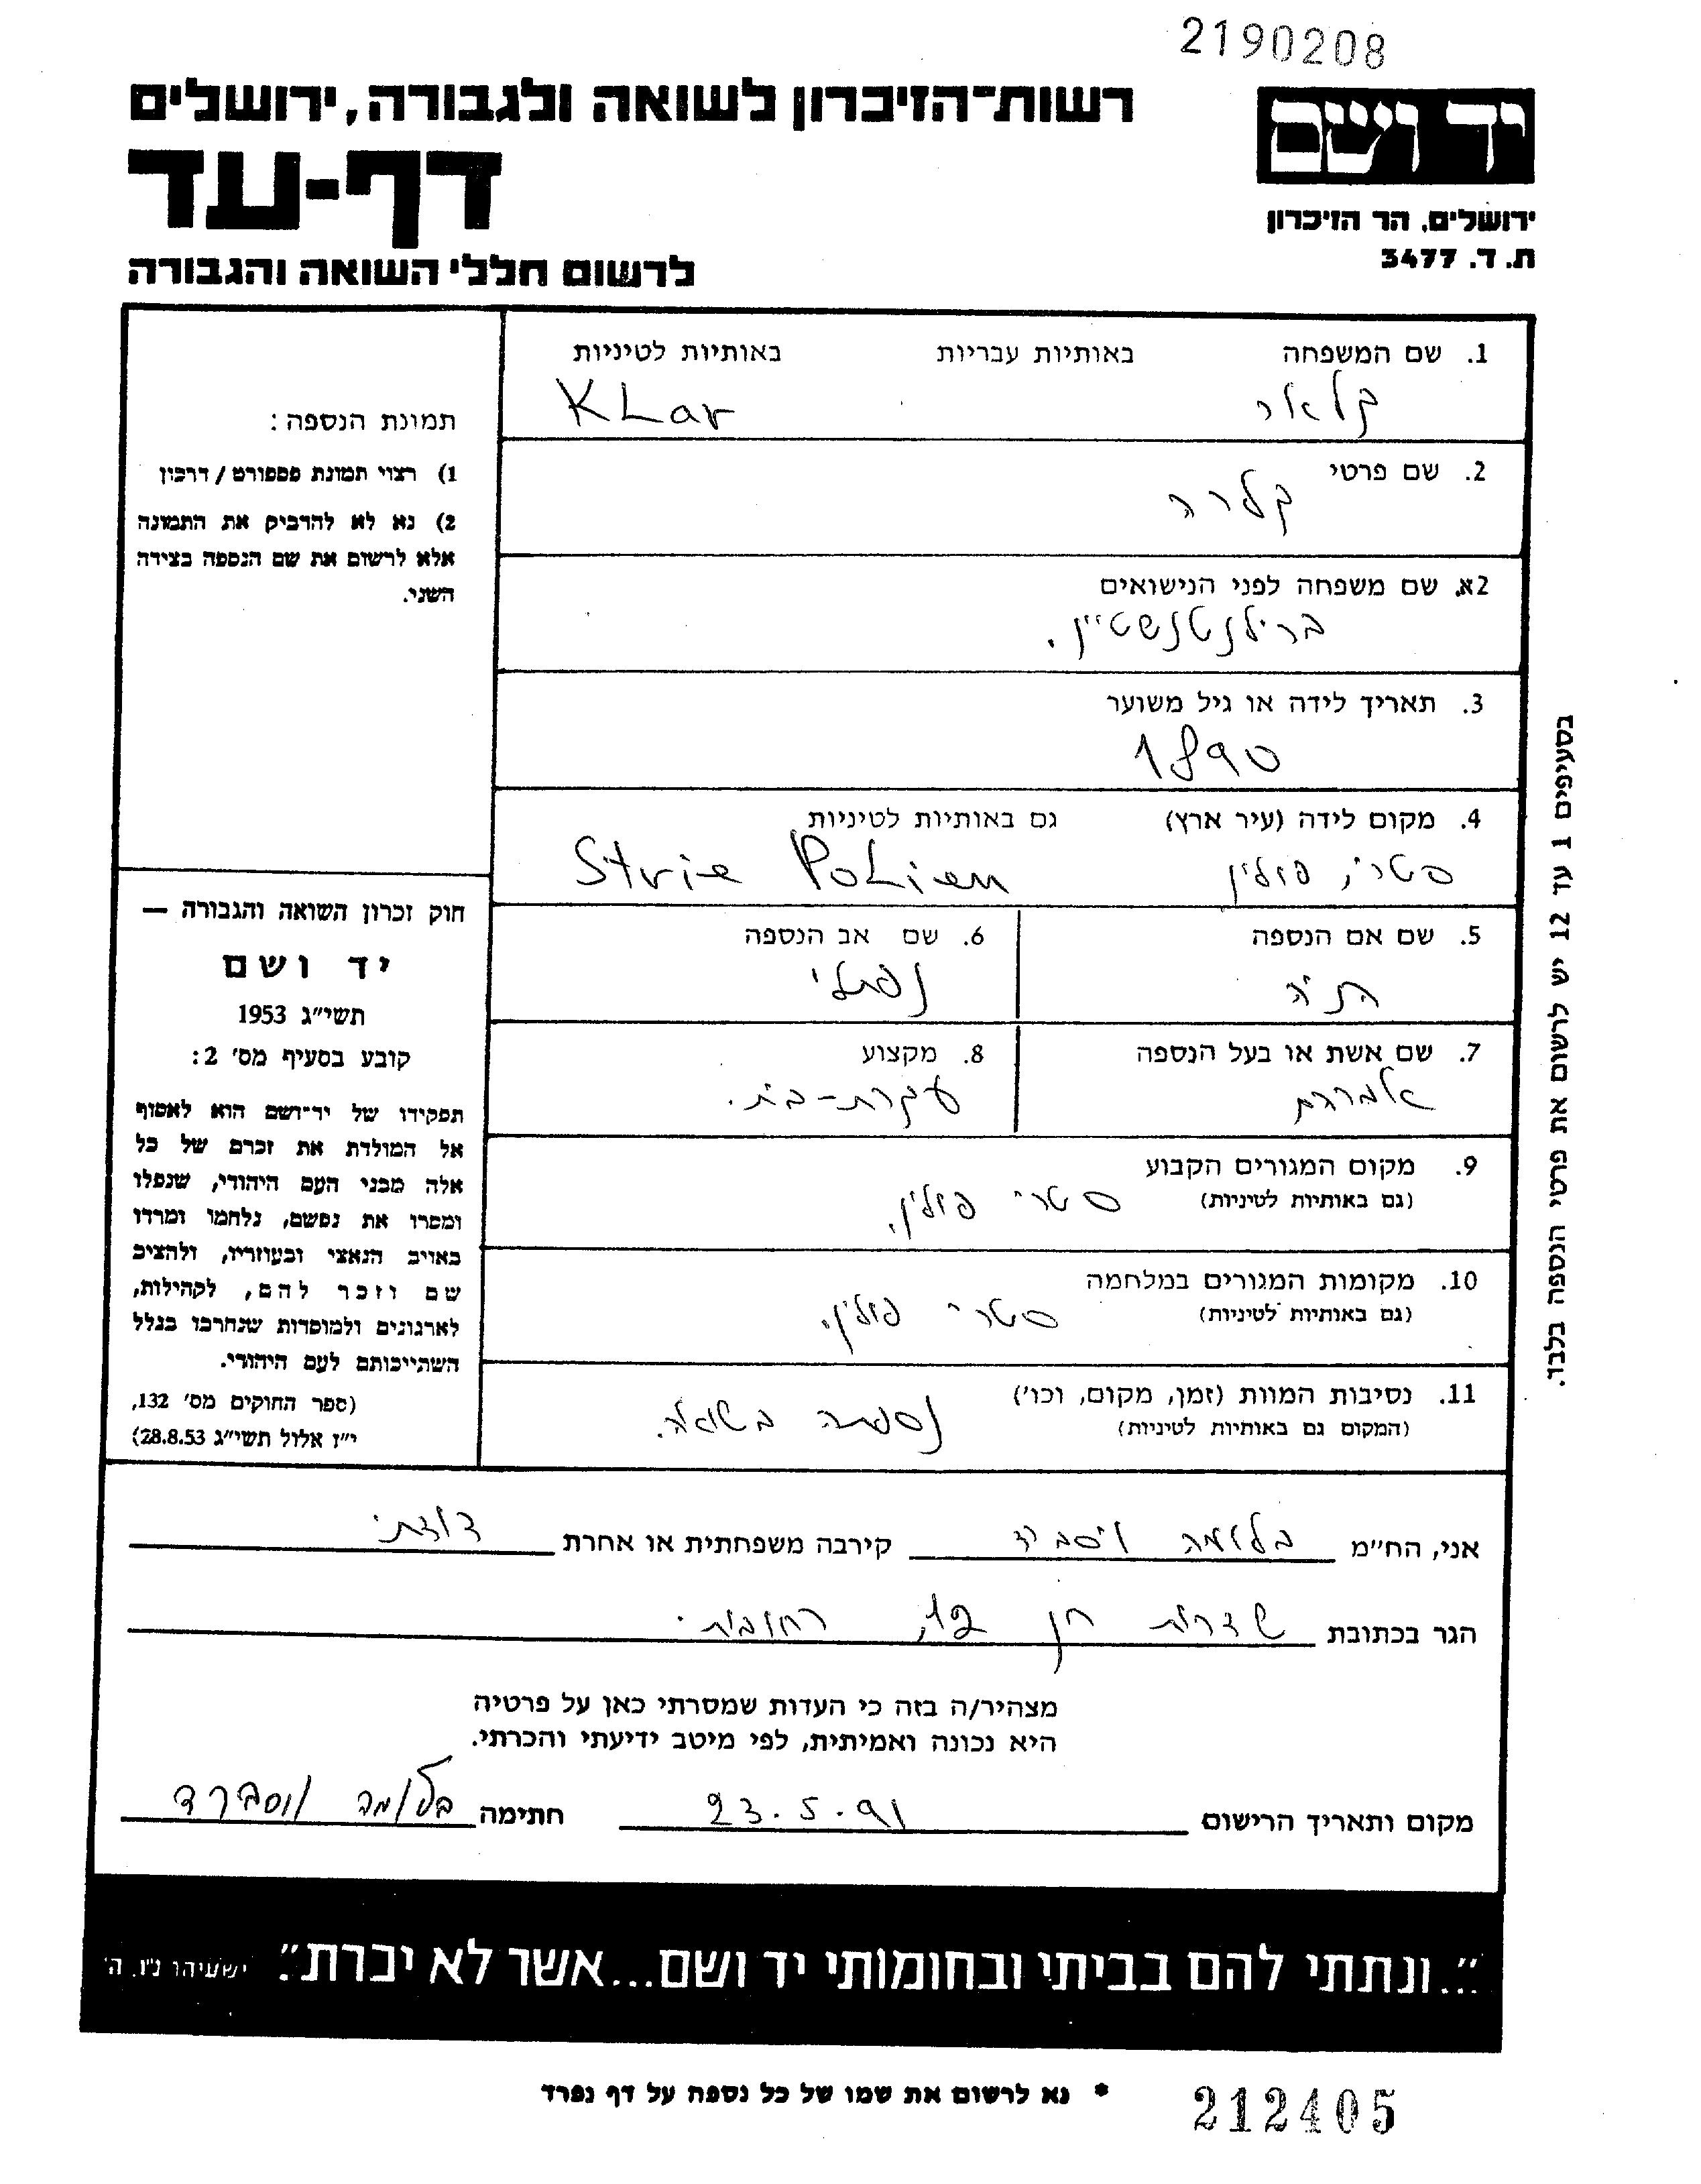 2190208
יד ושם
ירושלים, הר הזיכרון
ת. ד. 3477
רשות־הזיכרון לשואה ולגבורה, ירושלים
דף-עד
לרשום חללי השואה והגבורה
1. שם המשפחה באותיות עבריות באותיות לטיניות
קלאר KLar
2. שם פרטי
קלרה
2א. שם משפחה לפני הנישואים
ברילנטנשטיין.
3. תאריך לידה או גיל משוער
1890
4. מקום לידה (עיר ארץ) גם באותיות לטיניות
סטרי, פולין Strie PoLien
5. שם אם הנספה
חיה
6. שם אב הנספה
נפתלי
7. שם אשת או בעל הנספה
אברהם
8. מקצוע
עקרת-בית.
9. מקום המגורים הקבוע
(גם באותיות לטיניות)
סטרי פולין.
10. מקומות המגורים במלחמה
(גם באותיות לטיניות)
סטרי פולין.
11. נסיבות המוות (זמן, מקום, וכו')
(המקום גם באותיות לטיניות)
נספתה בשואה.
תמונת הנספה:
1) רצוי תמונת פספורט / דרכון
2) נא לא להדביק את התמונה
אלא לרשום את שם הנספה בצידה
השני.
חוק זכרון השואה והגבורה —
יד ושם
תשי"ג 1953
קובע בסעיף מס' 2:
תפקידו של יד־ושם הוא לאסוף
אל המולדת את זכרם של כל
אלה מבני העם היהודי, שנפלו
ומסרו את נפשם, נלחמו ומרדו
באויב הנאצי ובעוזריו, ולהציב
שם וזכר להם, לקהילות,
לארגונים ולמוסדות שנחרבו בגלל
השתייכותם לעם היהודי.
(ספר החוקים מס' 132,
י"ז אלול תשי"ג 28.8.53)
בסעיפים 1 עד 12 יש לרשום את פרטי הנספה בלבד.
אני, הח"מ בלומה קירבה משפחתית או אחרת דודתי
הגר בכתובת שדרות חן רחובות.
מצהיר/ה בזה כי העדות שמסרתי כאן על פרטיה
היא נכונה ואמיתית, לפי מיטב ידיעתי והכרתי.
מקום ותאריך הרישום 23.5.91 חתימה בלומה
"...ונתתי להם בביתי ובחומותי יד ושם...אשר לא יכרת". ישעיהו נ"ו, ה'
* נא לרשום את שמו של כל נספה על דף נפרד
212405